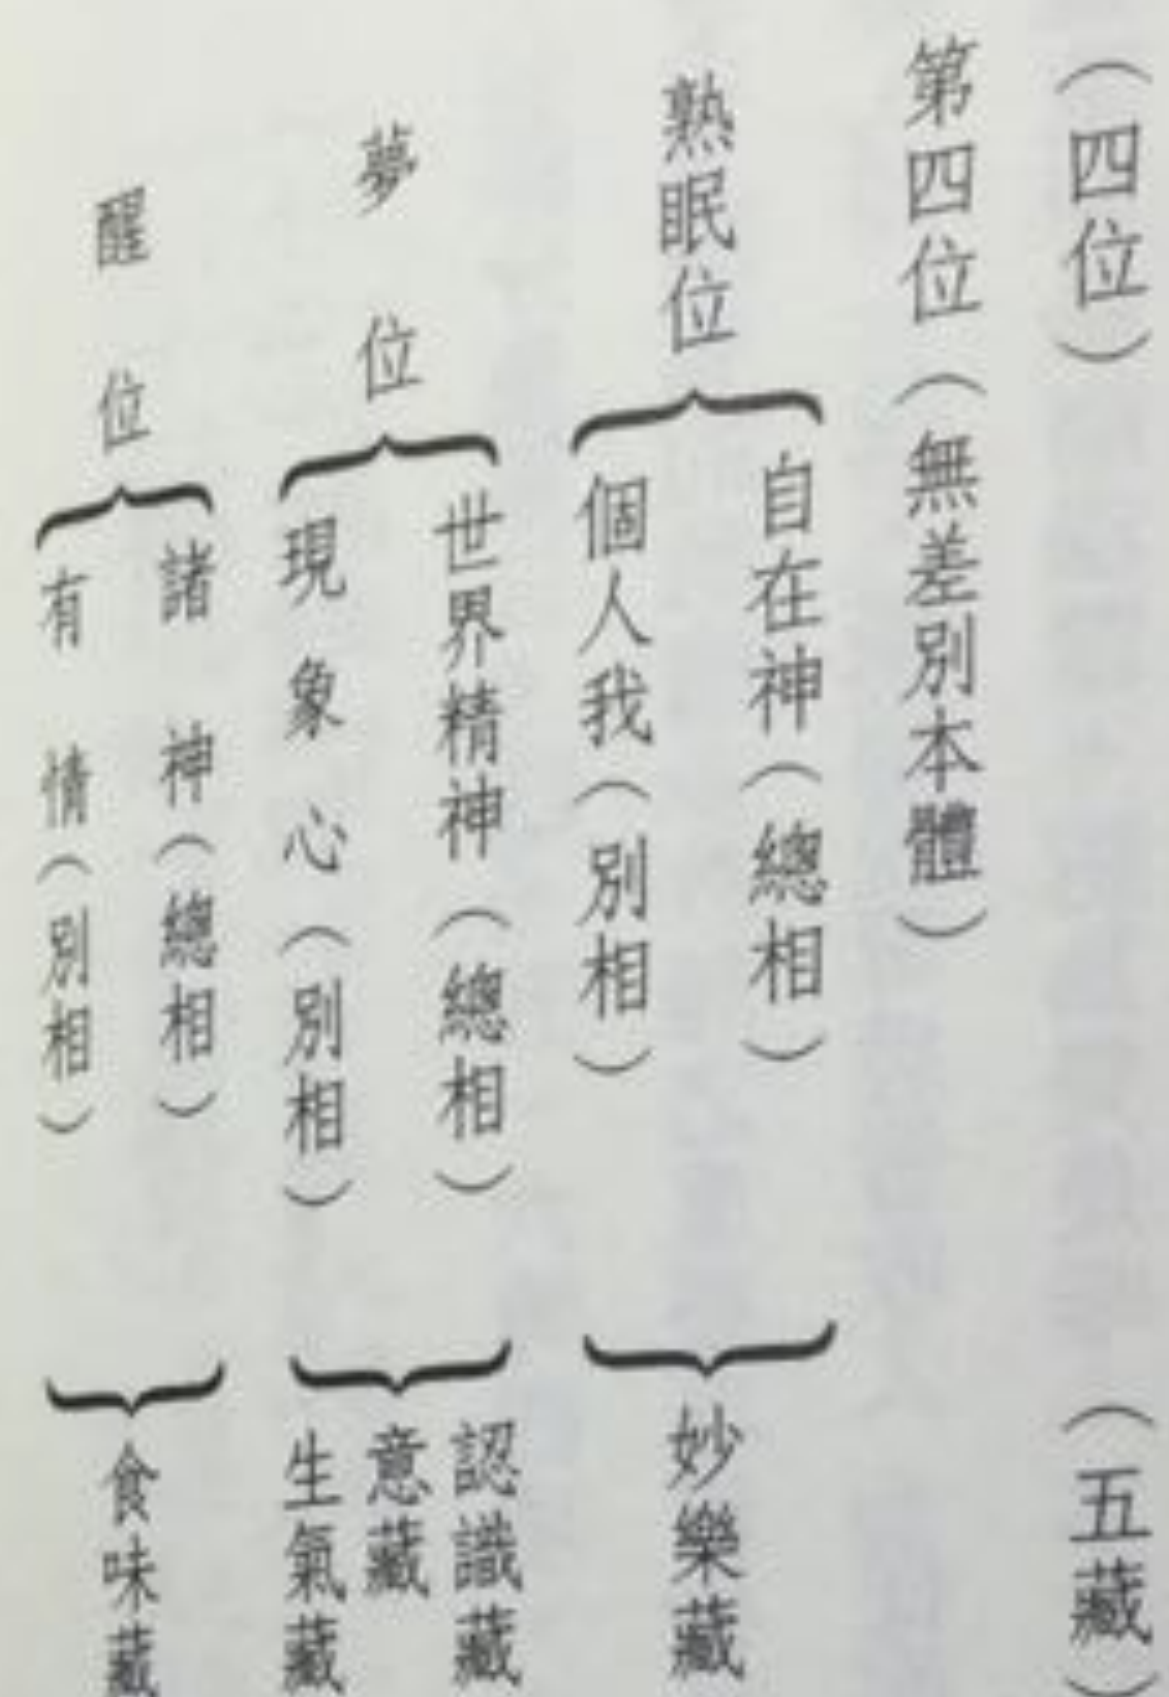 （四位）
（五藏）
第四位（無差別本體）
熟眠位
自在神（總相）
個人我（別相）
妙樂藏
夢位
世界精神（總相）
現象心（別相）
認識藏
意藏
生氣藏
醒位
諸神（總相）
有情（別相）
食味藏